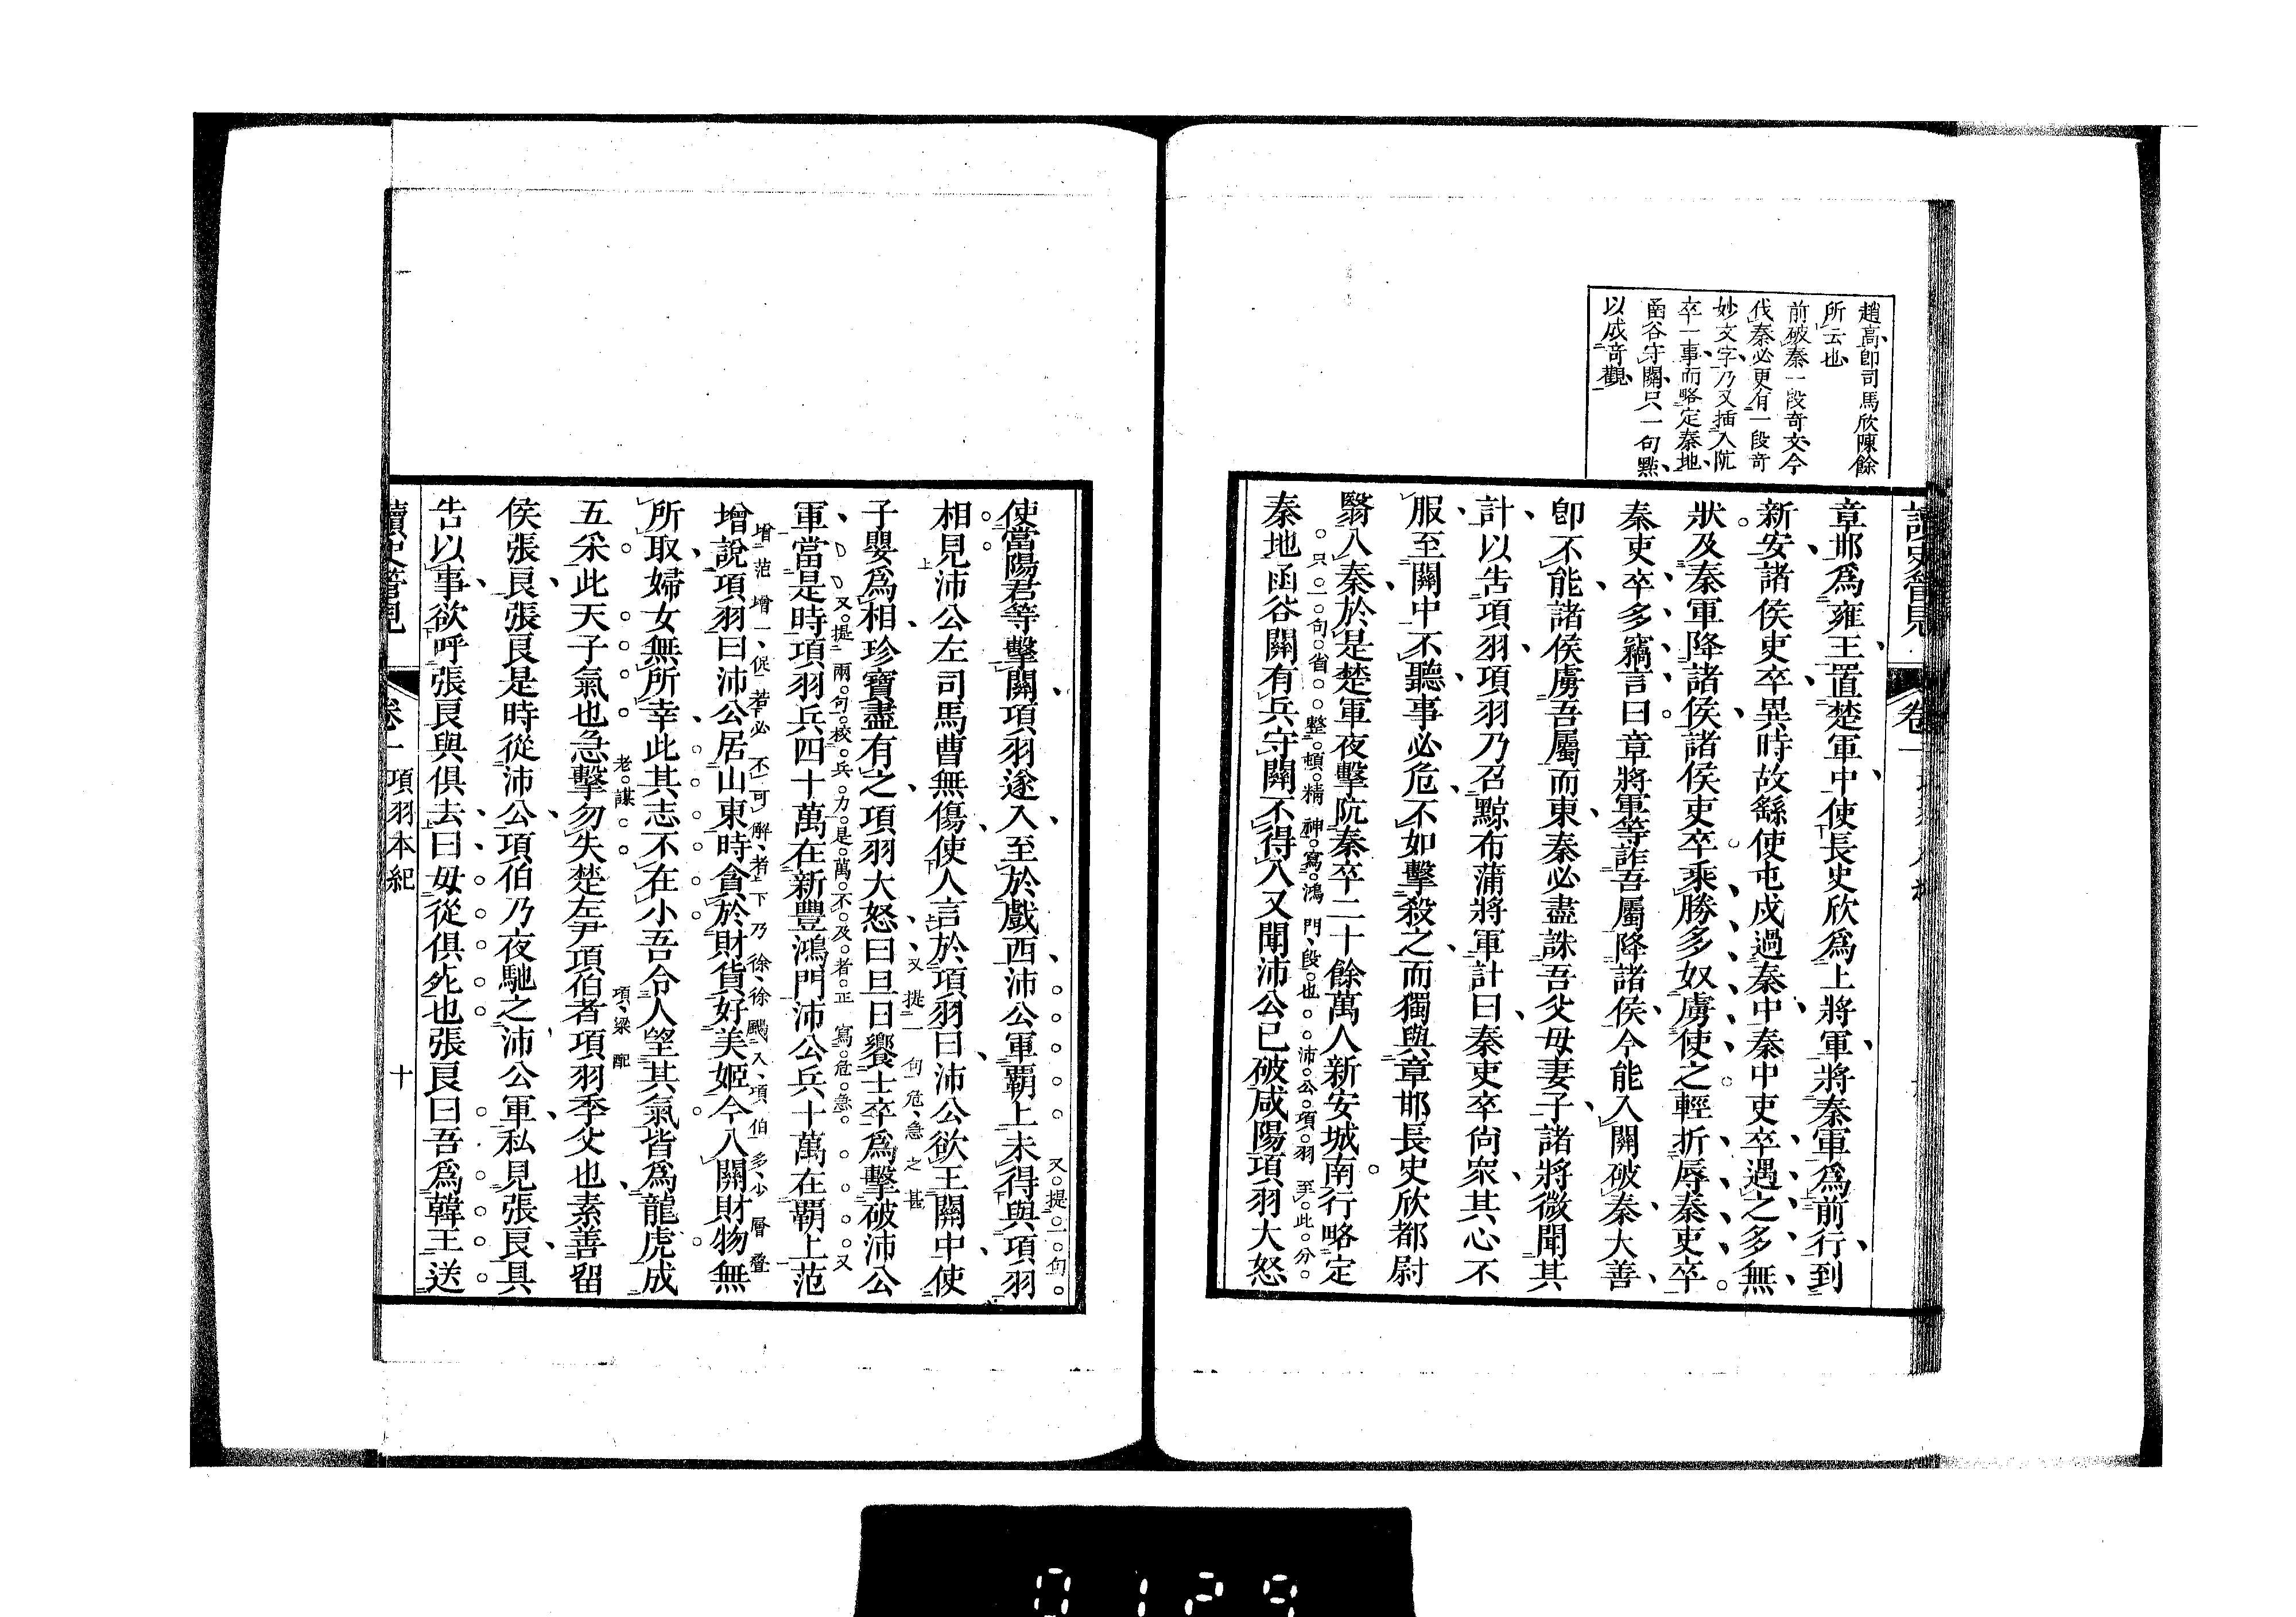 趙高卽司馬欣陳餘
所云也
前破秦一段奇文今
伐秦必更有一段奇
妙文字乃又插入阬
卒一事而略定秦地
函谷守關只一句點
以成奇觀
讀史管見
卷一
章邯爲雍王置楚軍中使長史欣爲上將軍將秦軍爲前行到
新安諸侯吏卒異時故繇使屯戍過秦中秦中吏卒遇之多無
狀及秦軍降諸侯諸侯吏卒乘勝多奴虜使之輕折辱秦吏卒
秦吏卒多竊言曰章將軍等詐吾屬降諸侯今能入關破秦大善
卽不能諸侯虜吾屬而東秦必盡誅吾父母妻子諸將微聞其
計以告項羽項羽乃召黥布蒲將軍計曰秦吏卒尙衆其心不
服至關中不聽事必危不如擊殺之而獨與章邯長史欣都尉
翳入秦於是楚軍夜擊阬秦卒二十餘萬人新安城南行略定
只一句省 整頓精神寫鴻門段也 沛公項羽至此分
秦地函谷關有兵守關不得入又聞沛公已破咸陽項羽大怒
又提一句
使當陽君等擊關項羽遂入至於戲西沛公軍霸上未得與項羽
相見沛公左司馬曹無傷使人言於項羽曰沛公欲王關中使
又提一句危急之甚
子嬰爲相珍寶盡有之項羽大怒曰旦日饗士卒爲擊破沛公
又提兩句校兵力是萬不及者正寫危急 又
軍當是時項羽兵四十萬在新豐鴻門沛公兵十萬在霸上范
增范增一促若必不可解者下乃徐徐颺入項伯多少層疊
增說項羽曰沛公居山東時貪於財貨好美姬今入關財物無
所取婦女無所幸此其志不在小吾令人望其氣皆爲龍虎成
老謀 項梁配
五采此天子氣也急擊勿失楚左尹項伯者項羽季父也素善留
侯張良張良是時從沛公項伯乃夜馳之沛公軍私見張良具
告以事欲呼張良與俱去曰毋從俱死也張良曰吾爲韓王送
讀史管見
卷一 項羽本紀
十
0129